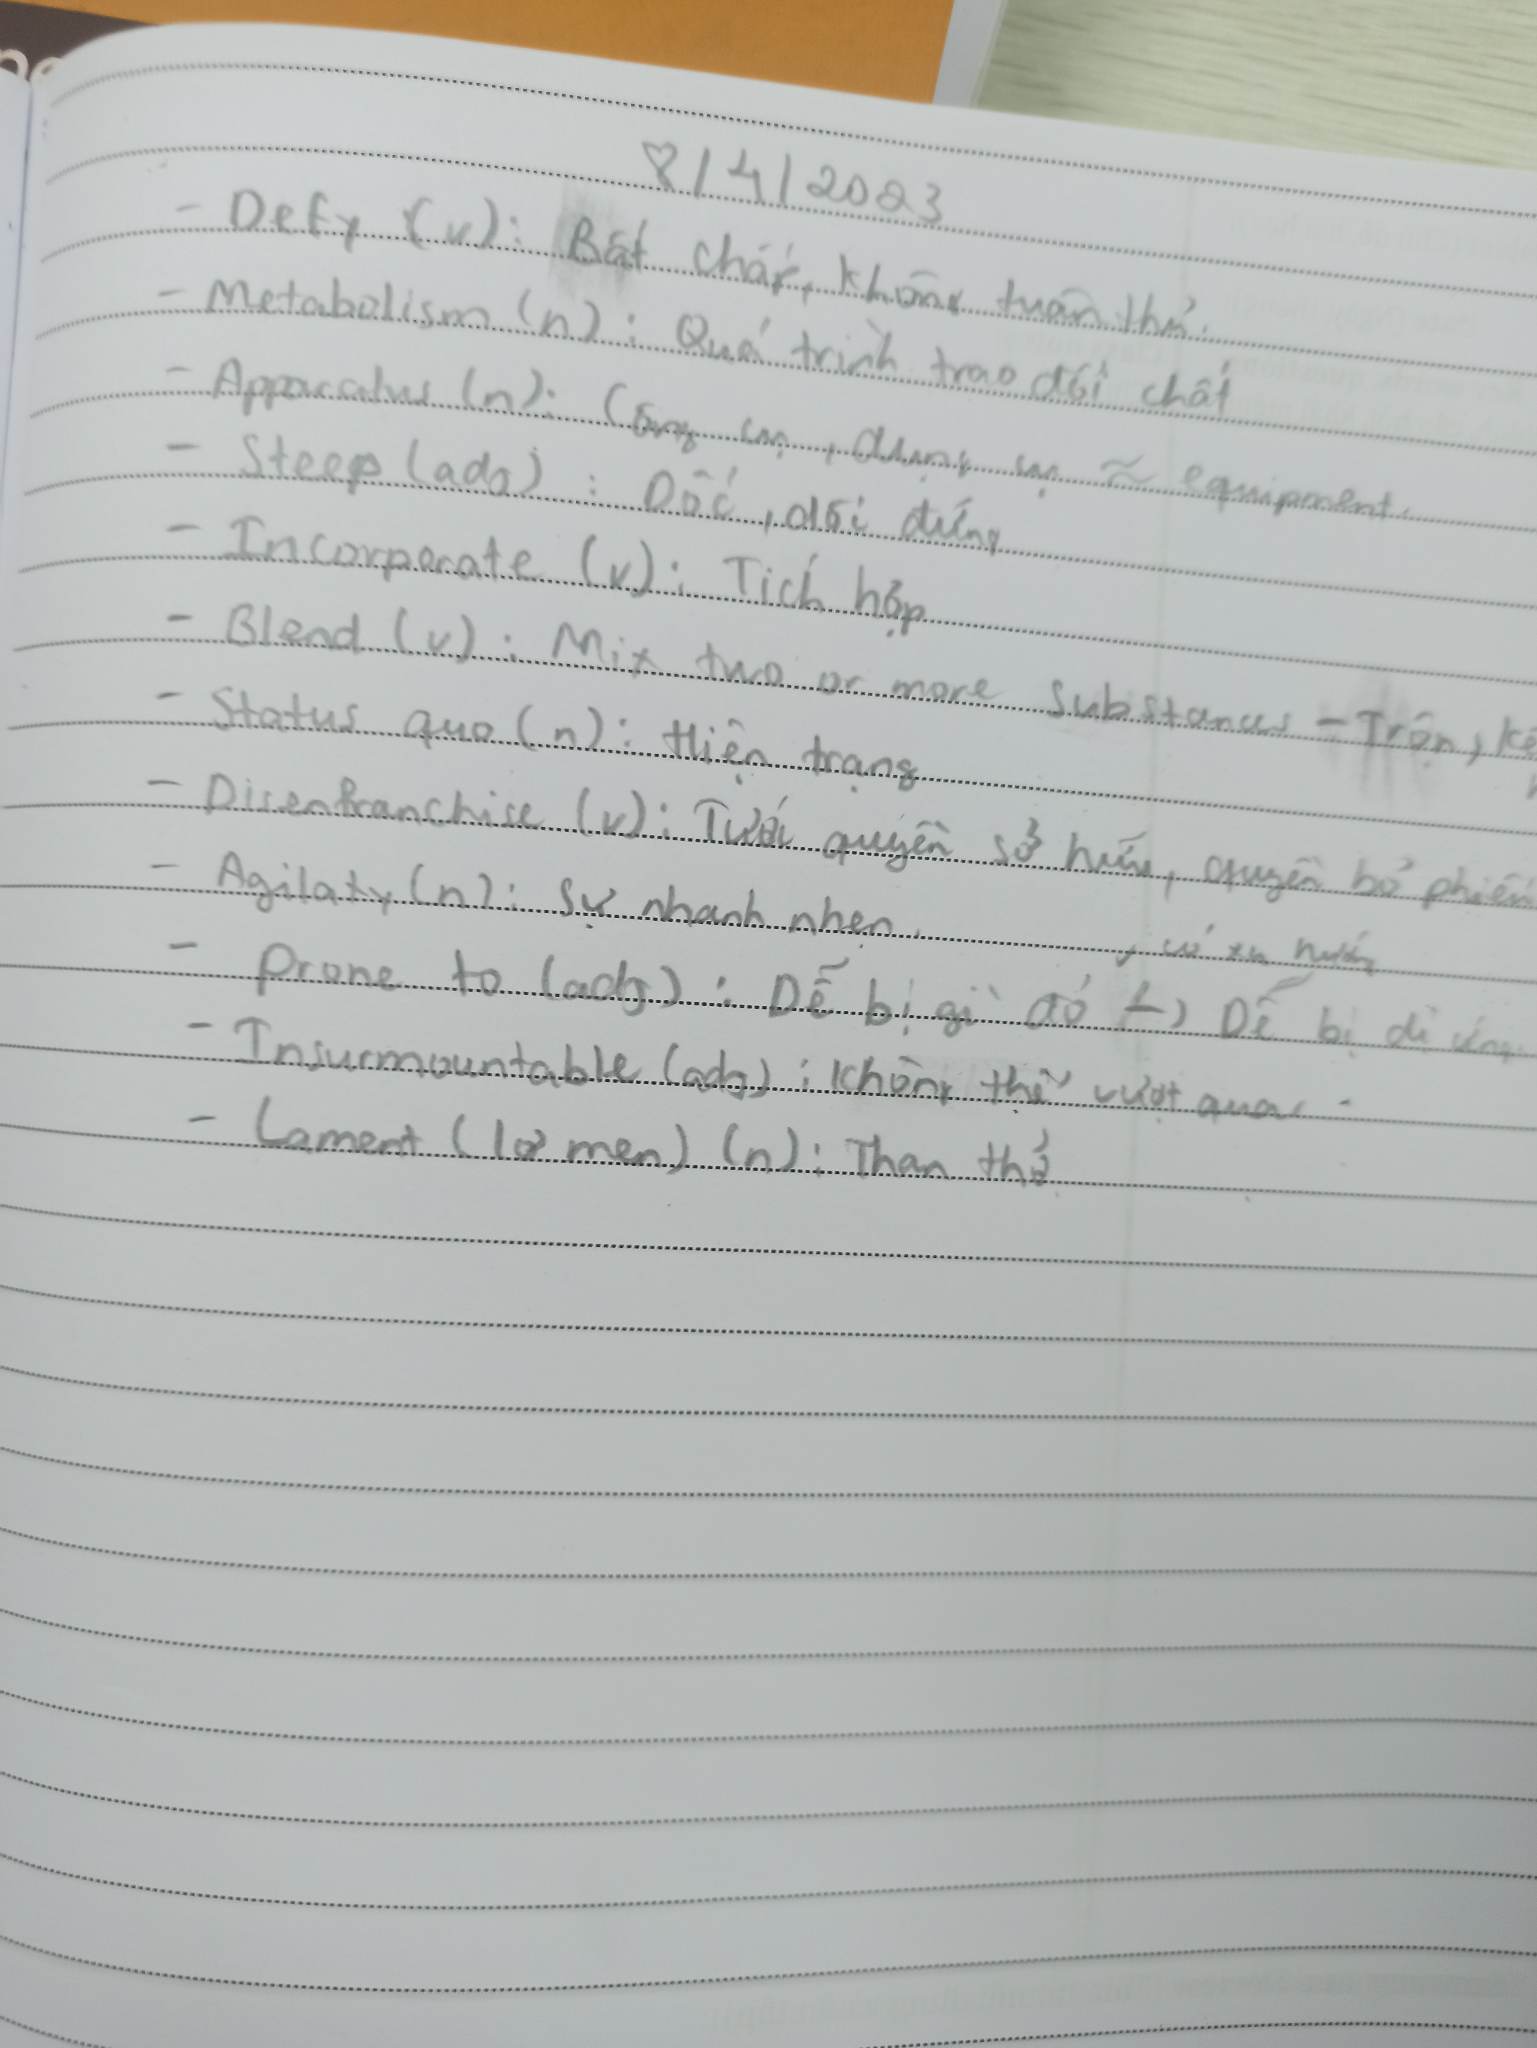 8/4/2023
- Defy (v): Bất chấp, không tuân thủ.
- Metabolism (n): Quá trình trao đổi chất
- Apparatus (n): Công cụ, dụng cụ ≈ equipment.
- Steep (adj): Dốc, dối đứng
- Incorporate (v): Tích hợp
- Blend (v): Mix two or more substances - Trộn,
- Status quo (n): Hiện trạng
- Disenfranchise (v): Tước quyền sở hữu, quyền bỏ phiếu
- Agilaty (n): Sự nhanh nhẹn.
, có xu hướng
- Prone to (adj): Dễ bị gì đó Dễ bị dị ứng
- Insurmountable (adj): Không thể vượt qua.
- Lament (lơ men) (n): Than thở